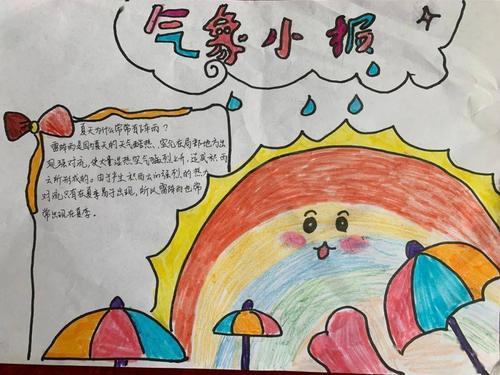 气象小报
夏天为什么常常有阵雨？
雷阵雨是因夏天的天气酷热，空气在局部地方出
现强对流，使大量湿热空气猛烈上升，造成积雨
云所形成的。由于产生积雨云的强烈的热力
对流只有在夏季易于出现，所以雷阵雨也常
常出现在夏季。